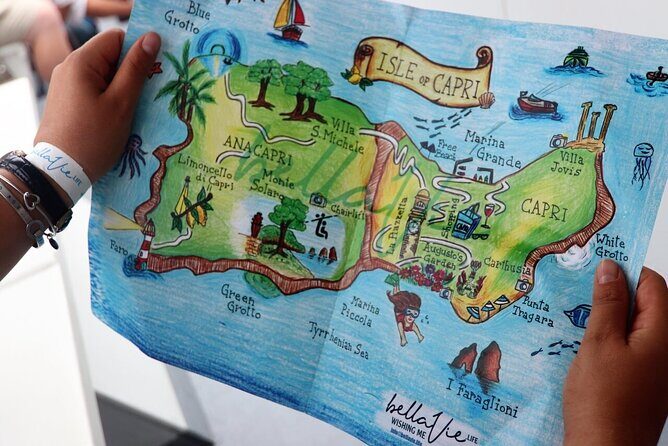 Blue
Grotto
ISLE OF CAPRI
Villa
S. Michele
ANACAPRI
Limoncello
di Capri
Monte
Solaro
Chairlift
Free
Beach
Marina
Grande
Villa
Jovis
CAPRI
La Piazzetta
Shopping
Augusto's
Garden
Carthusia
White
Grotto
Punta
Tragara
Faro
Green
Grotto
Marina
Piccola
Tyrrhenian Sea
I Faraglioni
bellaVie
WISHING ME LIFE
bellaVie LIFE